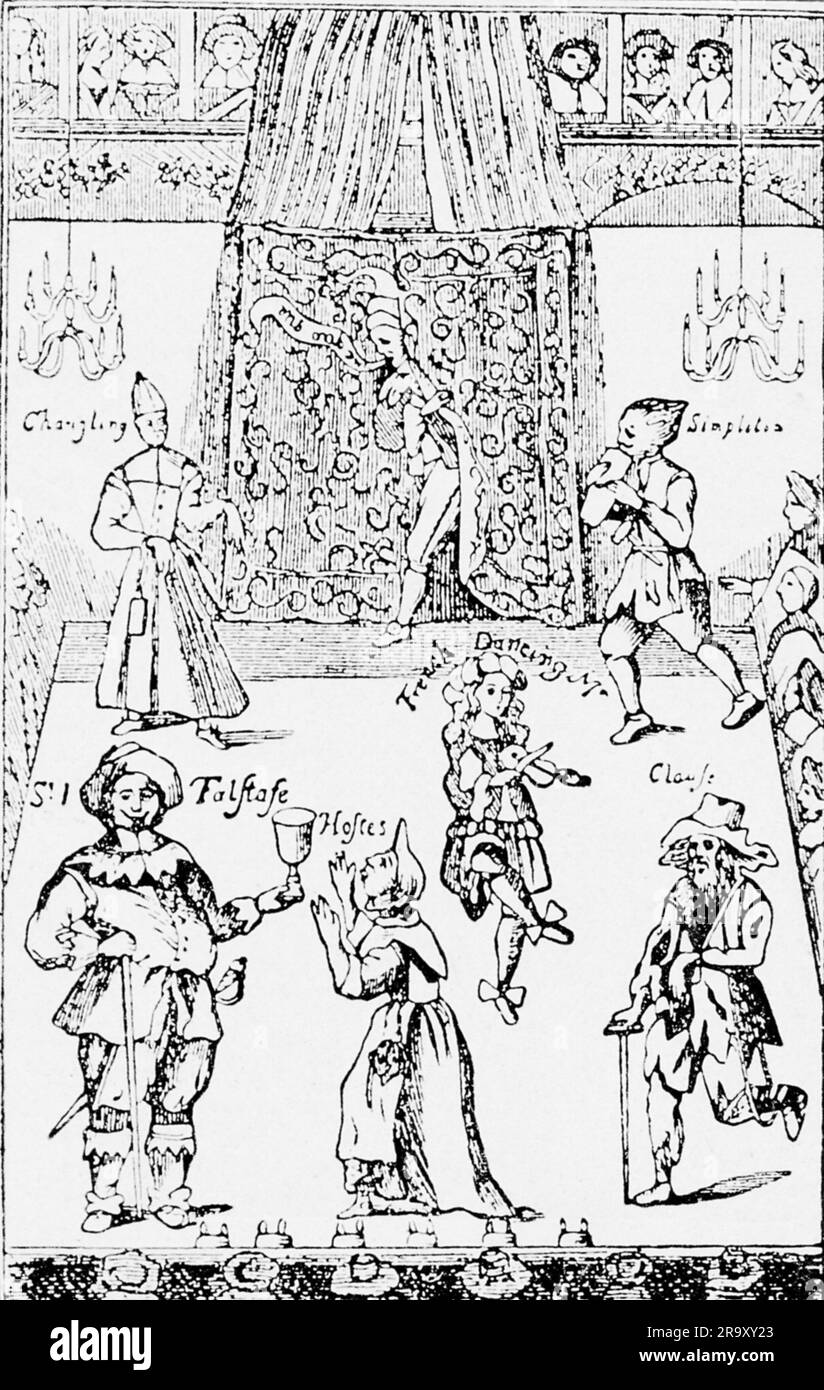 Changling
Simpleton
French Dancing Mr
Sr I Falstafe
Hostes
Clause
alamy
Image ID: 2R9XY23
www.alamy.com